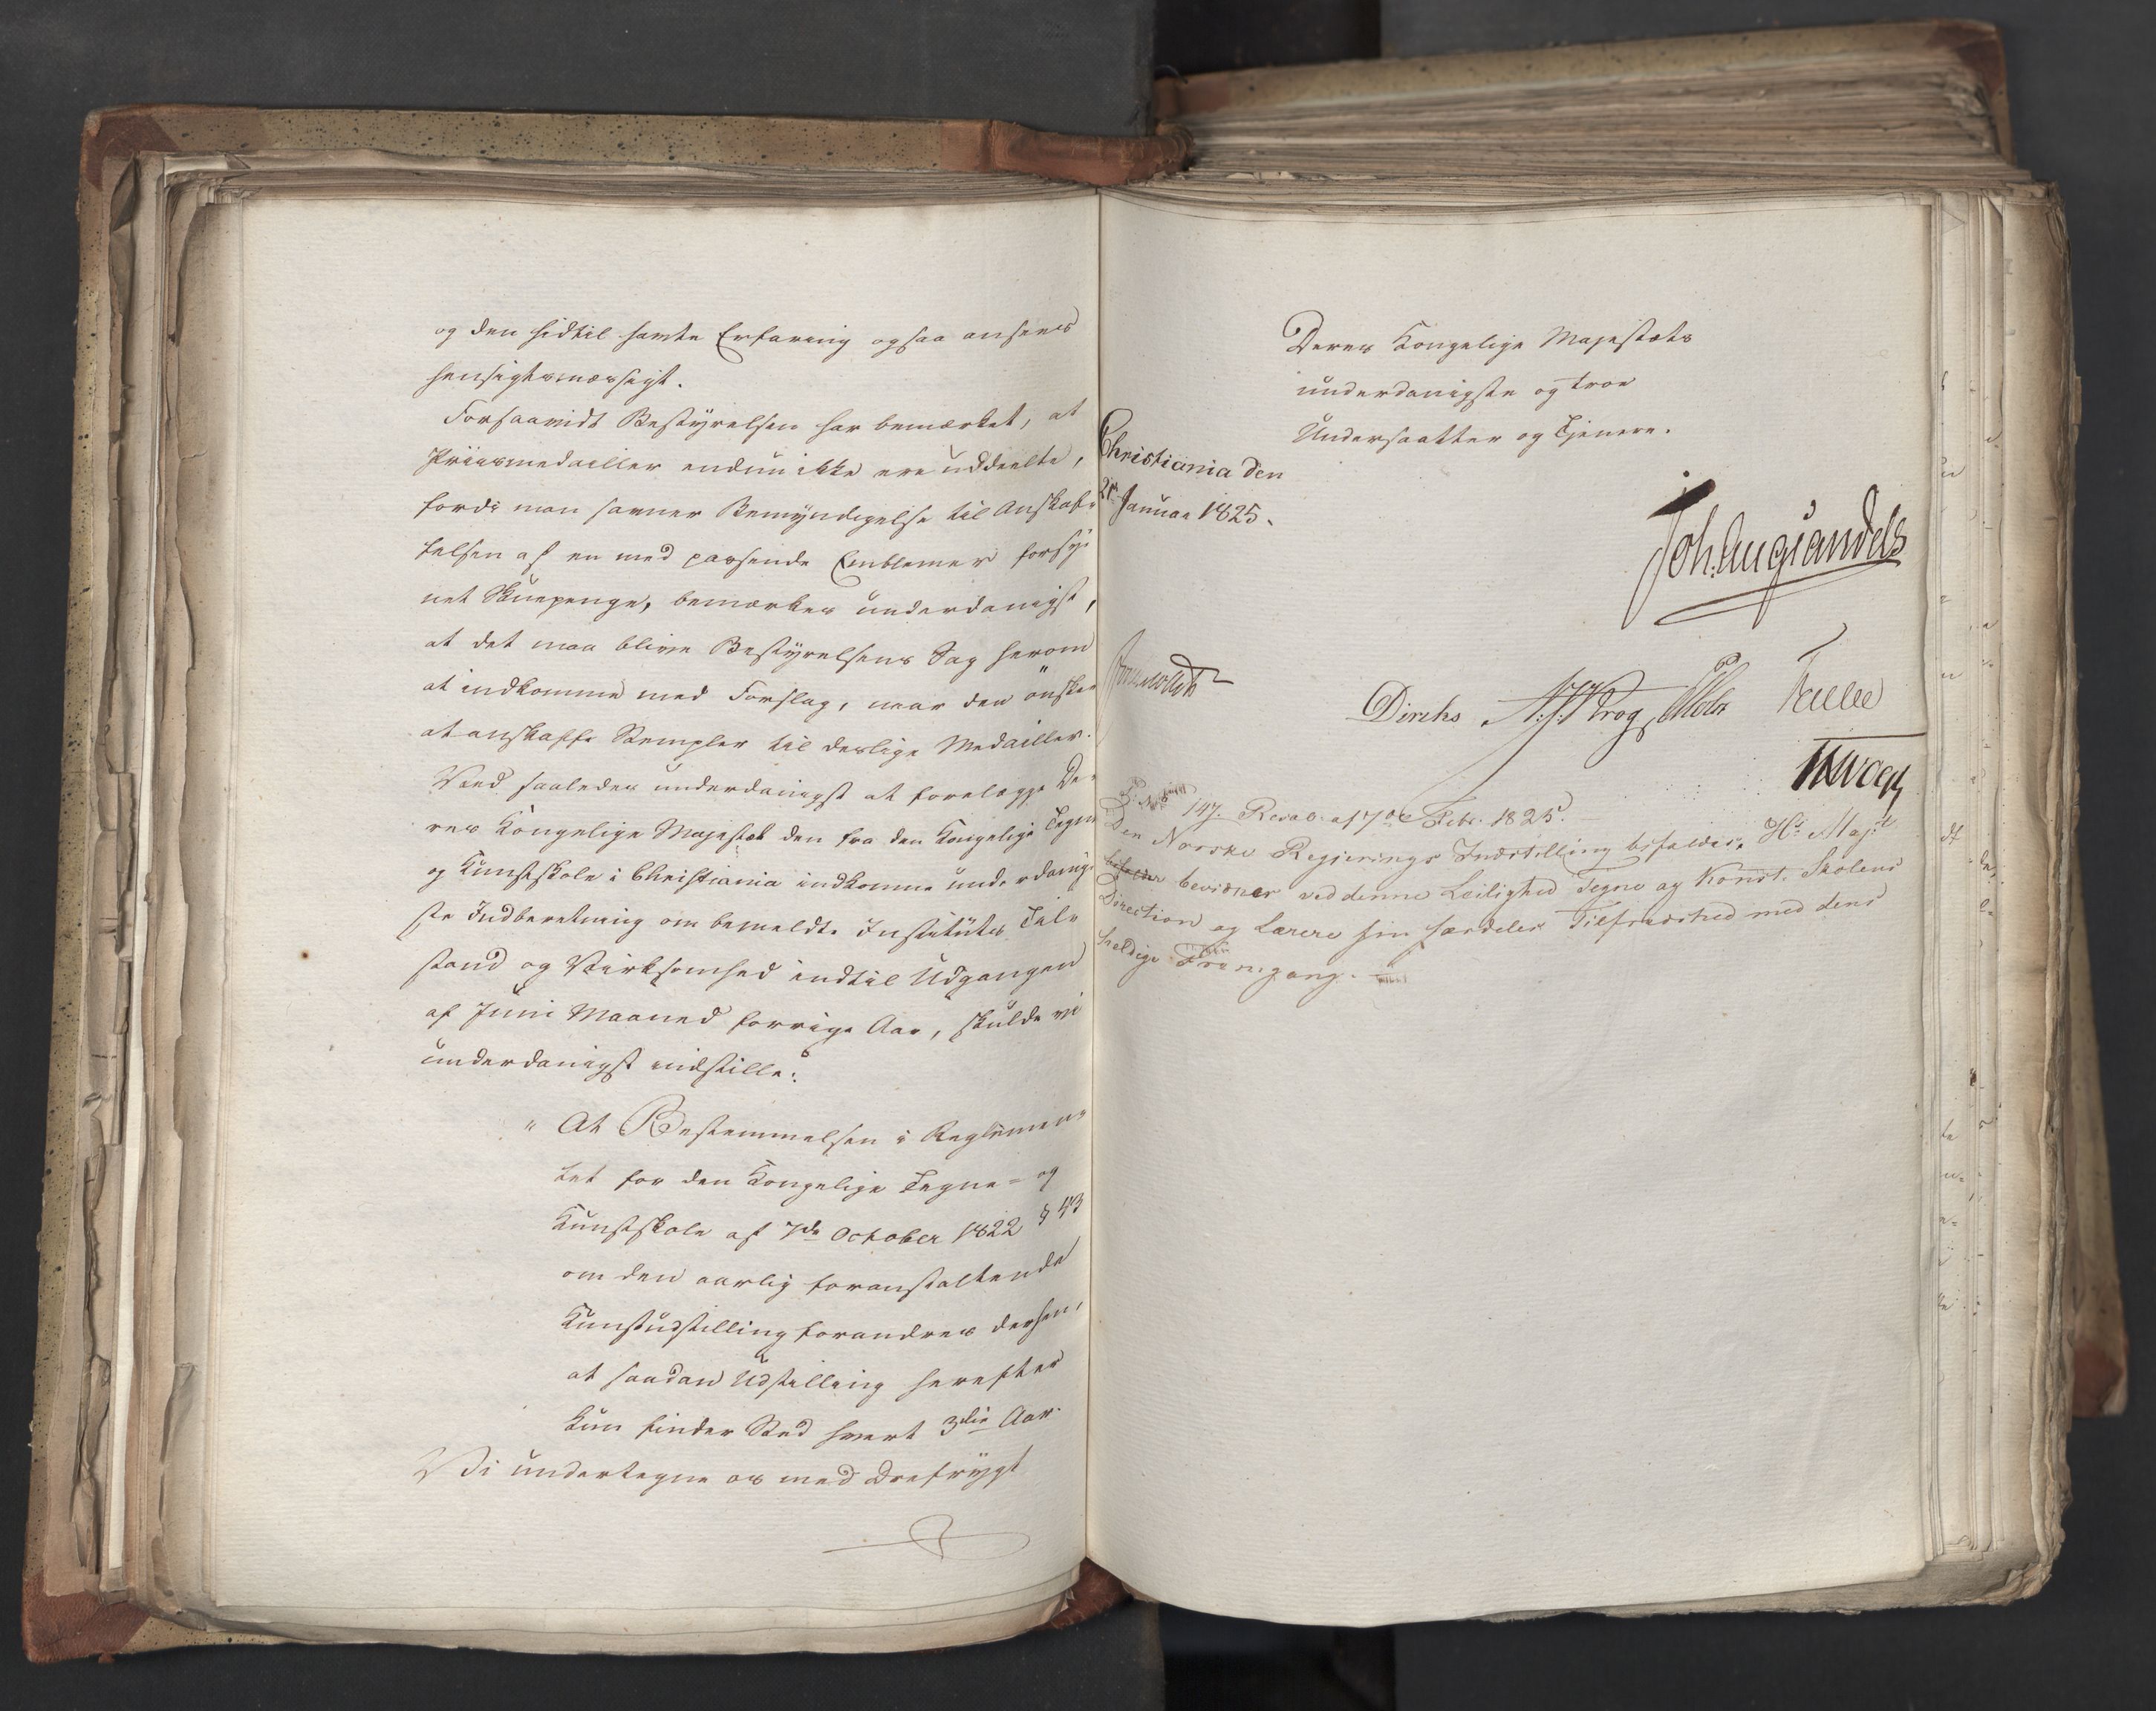 og den hidtil havte Erfaring ogsaa ansees
hensigtsmæssigt.
Forsaavidt Bestyrelsen har bemærket, at
Priismedailler endnu ikke ere uddeelte,
fordi man savner Bemyndigelse til Anskaf-
felsen af en med passende Emblemer forsy-
net Skuepenge, bemærkes underdanigst,
at det maa blive Bestyrelsens Sag herom
at indkomme med Forslag, naar den ønsker
at anskaffe Stempler til deslige Medailler.
Ved saaledes underdanigst at forelægge De-
res Kongelige Majestæt den fra den Kongelige Tegne
og Kunstskole i Christiania indkomne underdanig-
ste Indberetning om bemeldte Instituts Til-
stand og Virksomhed indtil Udgangen
af Juni Maaned forrige Aar, skulde vi
underdanigst indstille:
" At Bestemmelsen i Reglemen-
tet for den Kongelige Tegne- og
Kunstskole af 7de October 1822 § 43
om den aarlig foranstaltende
Kunstudstilling forandres derhen,
at saadan Udstilling herefter
kun finder Sted hvert 3die Aar.
Vi undertegne os med Drefrygt
Deres Kongelige Majestæts
underdanigste og troe
Undersaatter og Tjenere.
Christiania den
21 Januar 1825.
Joh: Aug: Sandels
Diriks N: J: Krog
147. Resol. af 7de Febr. 1825.
Den Norske Regjerings Indstilling bifaldes. Hs Majt
bifalder bevidner ved denne Leilighed Tegne og Konst. Skolens
Direction og Lærere sin særdeles Tilfredshed med dens
heldige Fremgang.